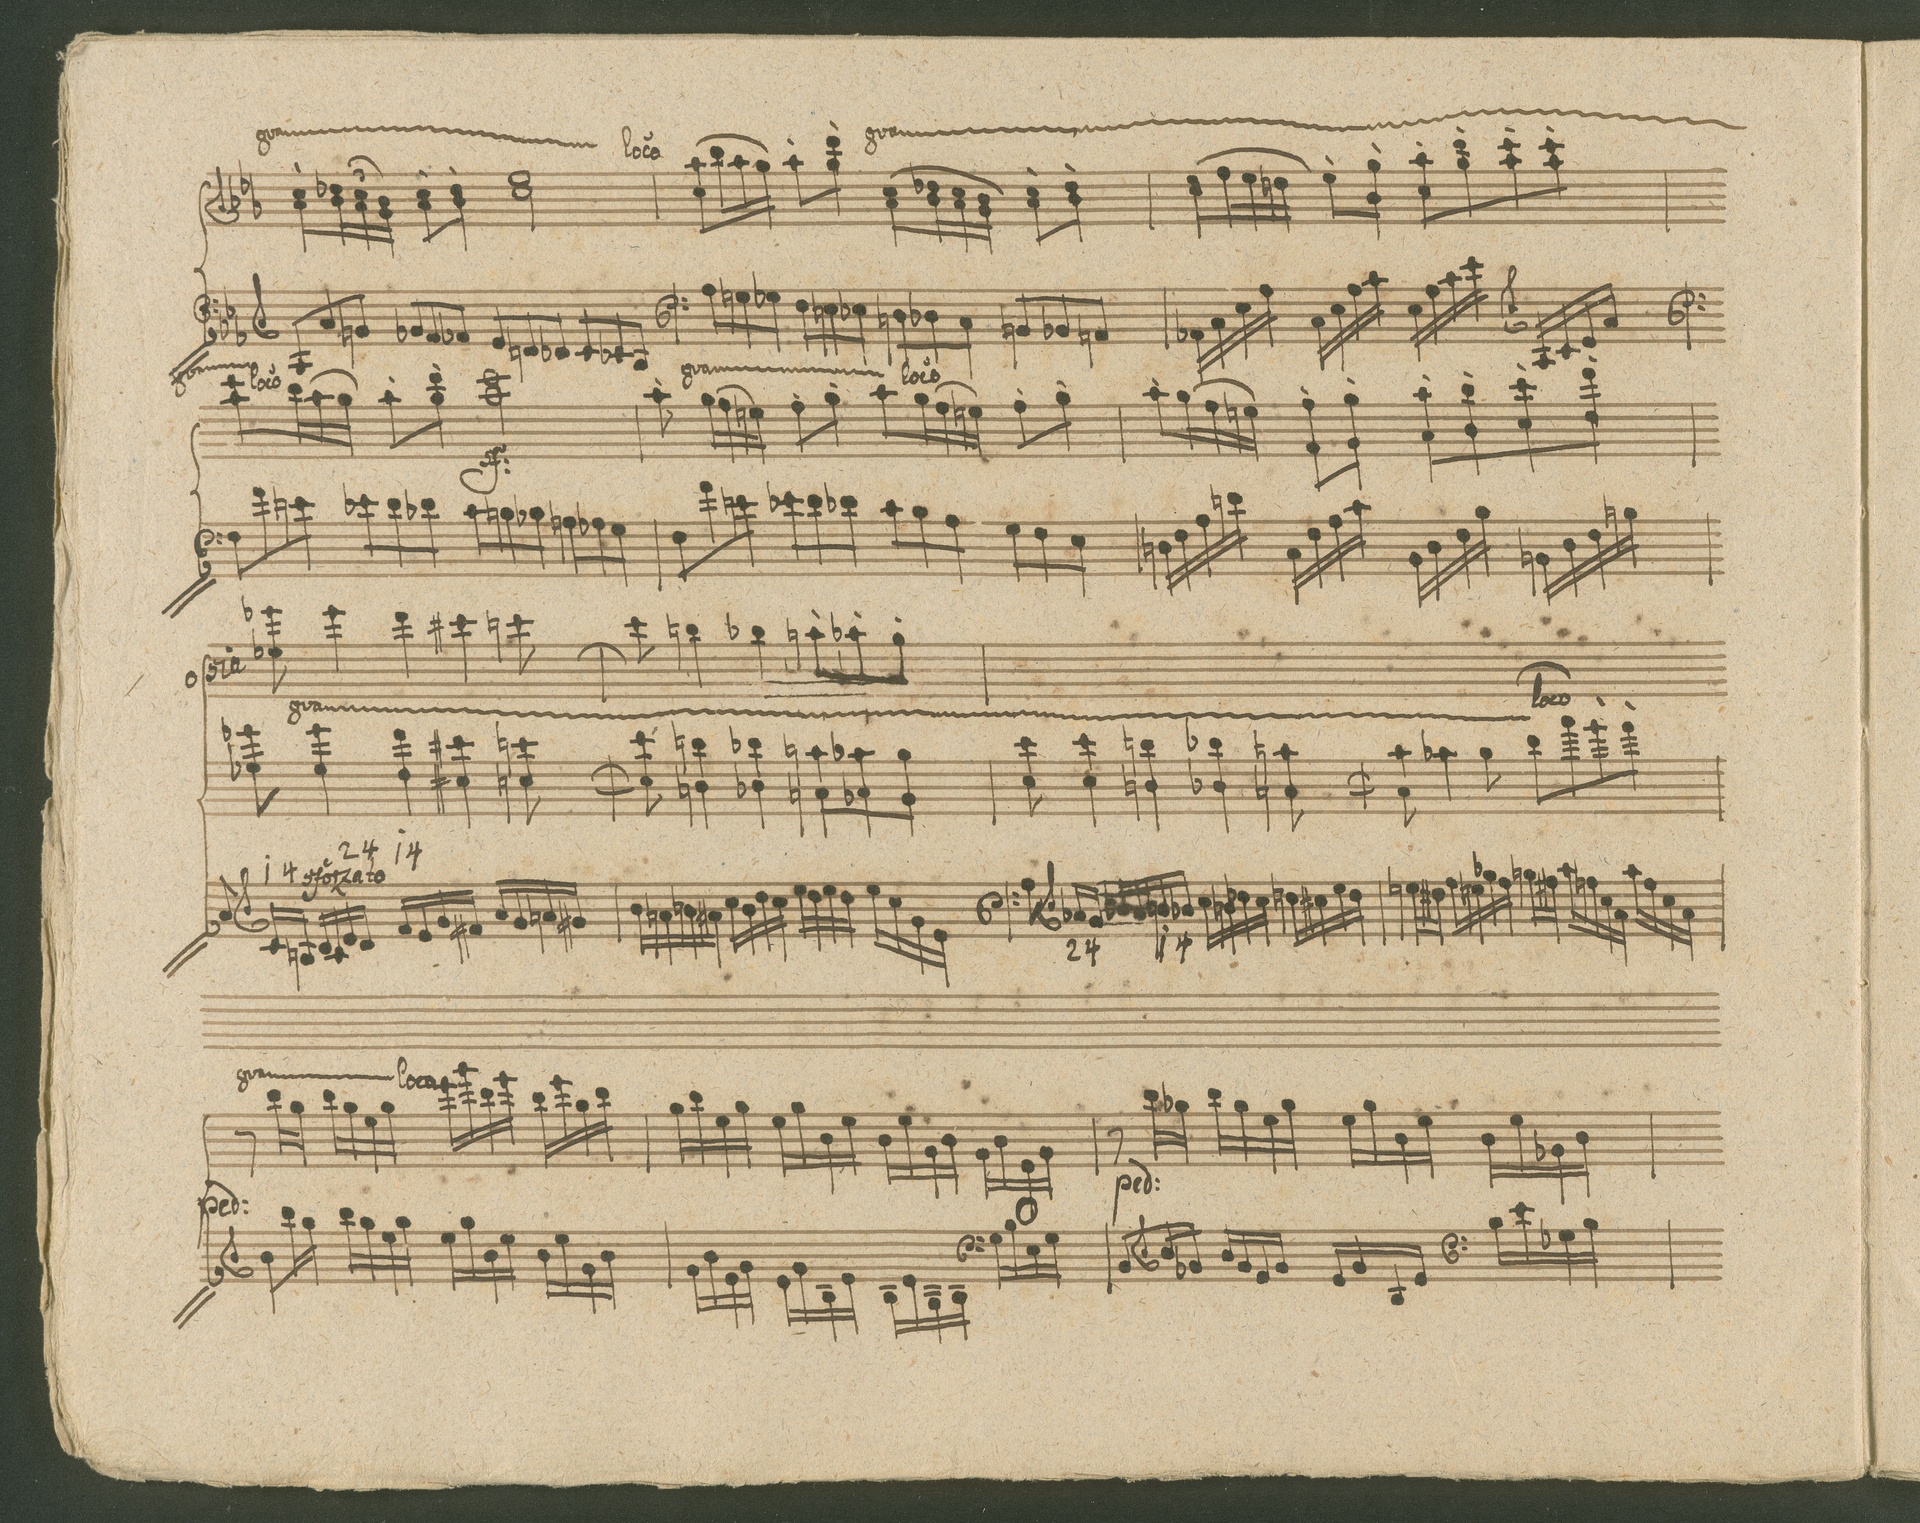 8va loco 8va
8va loco 8va loco
sf:
ossia
8va loco
1 4 sforzato 2 4 1 4
2 4 1 4
8va loco
ped: ped: